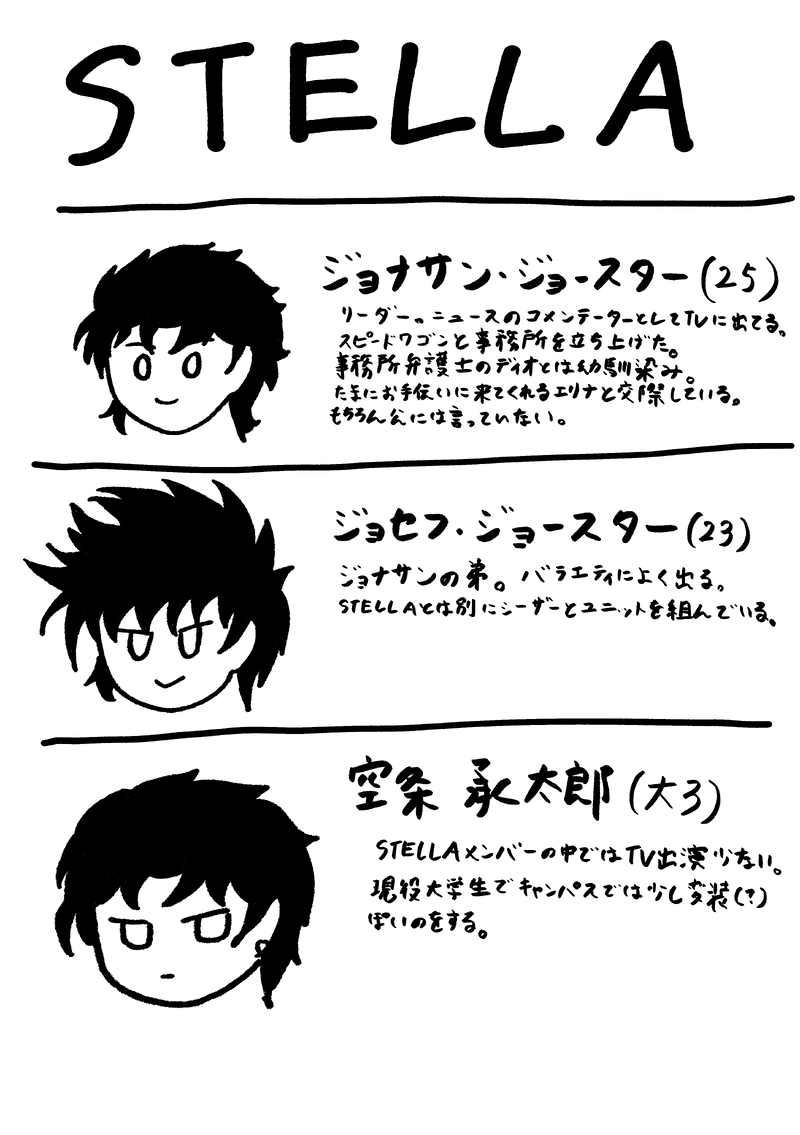 STELLA
ジョナサン・ジョースター(25)
リーダー。ニュースのコメンテーターとしてTVに出てる。
スピードワゴンと事務所を立ち上げた。
事務所弁護士のディオとは幼馴染み。
たまにお手伝いに来てくれるエリナと交際している。
もちろん公には言っていない。
ジョセフ・ジョースター(23)
ジョナサンの弟。バラエティによく出る。
STELLAとは別にシーザーとユニットを組んでいる。
空条 承太郎(大3)
STELLAメンバーの中ではTV出演少ない。
現役大学生でキャンパスでは少し変装(?)
ぽいのをする。